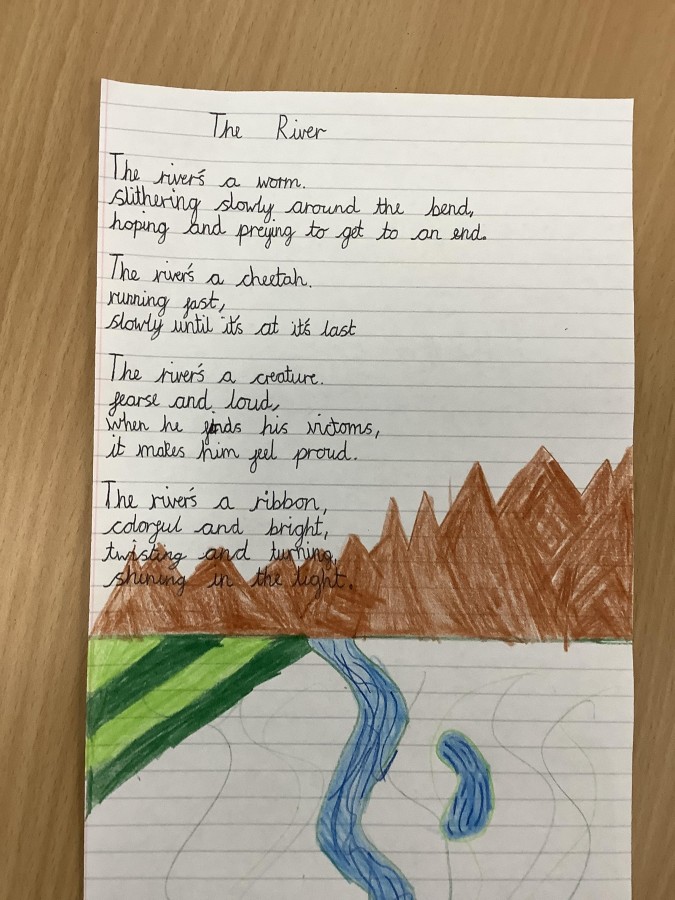 The River
The river's a worm.
slithering slowly around the bend,
hoping and preying to get to an end.
The river's a cheetah.
running fast,
slowly until it's at it's last
The river's a creature.
fearse and loud,
when he finds his victoms,
it makes him feel proud.
The river's a ribbon,
colorful and bright,
twisting and turning,
shining in the light.